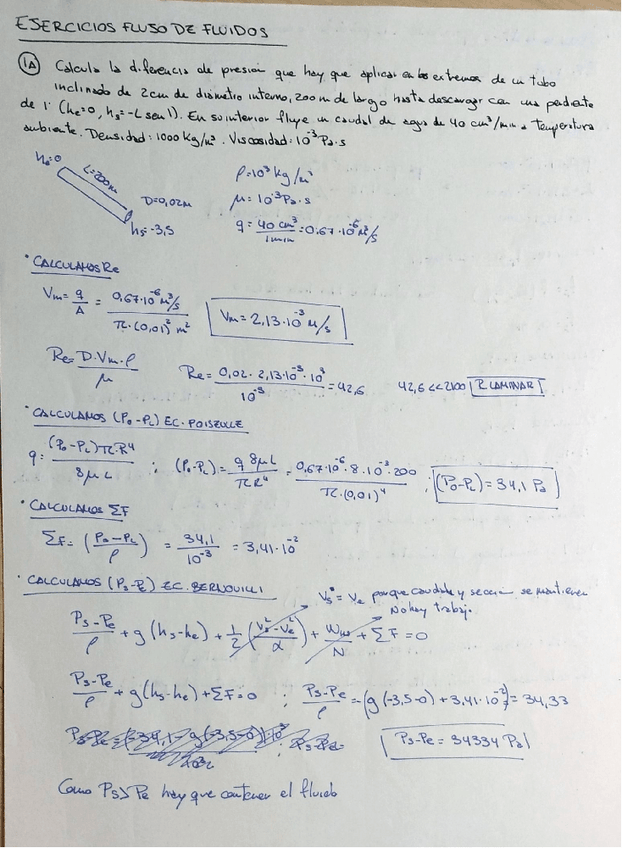 EJERCICIOS FLUJO DE FLUIDOS
1A Calcula la diferencia de presión que hay que aplicar en los extremos de un tubo
inclinado de 2cm de diámetro interno, 200 m de largo hasta descargar con una pendiente
de 1° (he=0, hs=-L sen 1). En su interior fluye un caudal de agua de 40 cm³/min a temperatura
ambiente. Densidad: 1000 Kg/m³. Viscosidad: 10⁻³ Pa·s
he=0
L=200m
D=0,02m
hs=-3,5
ρ=10³ Kg/m³
μ=10⁻³ Pa·s
q = 40 cm³/1min = 0,67·10⁻⁶ m³/s
· CALCULAMOS Re
Vm = q/A = 0,67·10⁻⁶ m³/s / π·(0,01)² m² Vm = 2,13·10⁻³ m/s
Re = D·Vm·ρ/μ Re = 0,02·2,13·10⁻³·10³/10⁻³ = 42,6 42,6 << 2100 R LAMINAR
· CALCULAMOS (Po-PL) EC. POISEULLE
q = (Po-PL)πR⁴/8μL ; (Po-PL) = q8μL/πR⁴ = 0,67·10⁻⁶·8·10⁻³·200/π·(0,01)⁴ ; (Po-PL) = 34,1 Pa
· CALCULAMOS ΣF
ΣF = (Po-PL/ρ) = 34,1/10⁻³ = 3,41·10⁻²
· CALCULAMOS (Ps-Pe) EC. BERNOUILLI
Vs = Ve porque caudal y sección se mantienen
No hay trabajo
Ps-Pe/ρ + g(hs-he) + 1/2 (Vs²-Ve²/α) + Ws/N + ΣF = 0
Ps-Pe/ρ + g(hs-he) + ΣF = 0 ; Ps-Pe/ρ = -(g(-3,5-0) + 3,41·10⁻²) = 34,33
Ps-Pe = 34334 Pa
Como Ps>Pe hay que contener el fluido